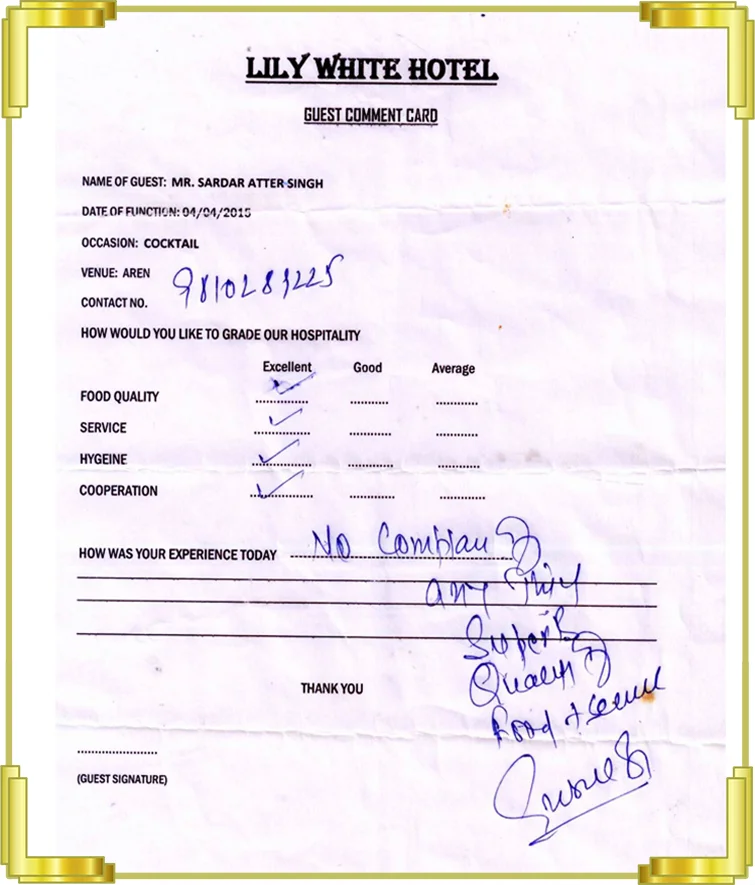 LILY WHITE HOTEL
GUEST COMMENT CARD
NAME OF GUEST: MR. SARDAR ATTER SINGH
DATE OF FUNCTION: 04/04/2015
OCCASION: COCKTAIL
VENUE: AREN
CONTACT NO. 9810289225
HOW WOULD YOU LIKE TO GRADE OUR HOSPITALITY
Excellent Good Average
FOOD QUALITY
SERVICE
HYGEINE
COOPERATION
HOW WAS YOUR EXPERIENCE TODAY No Complan of
any thing
Superb
Quality of
food &
THANK YOU
(GUEST SIGNATURE)